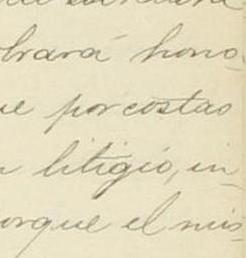 brará hono-
ue por costas
n litigio, in-
orque el mis-